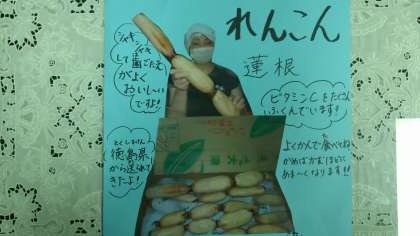 れんこん
蓮根
シャキシャキ
して歯ごたえ
がよく
おいしい
ですよ!
ビタミンCをたくさん
ふくんでいます!
とくしまけん
徳島県
から送られて
きたよ!
よくかんで食べてね
かめばかむほどに
あま〜くなります!!